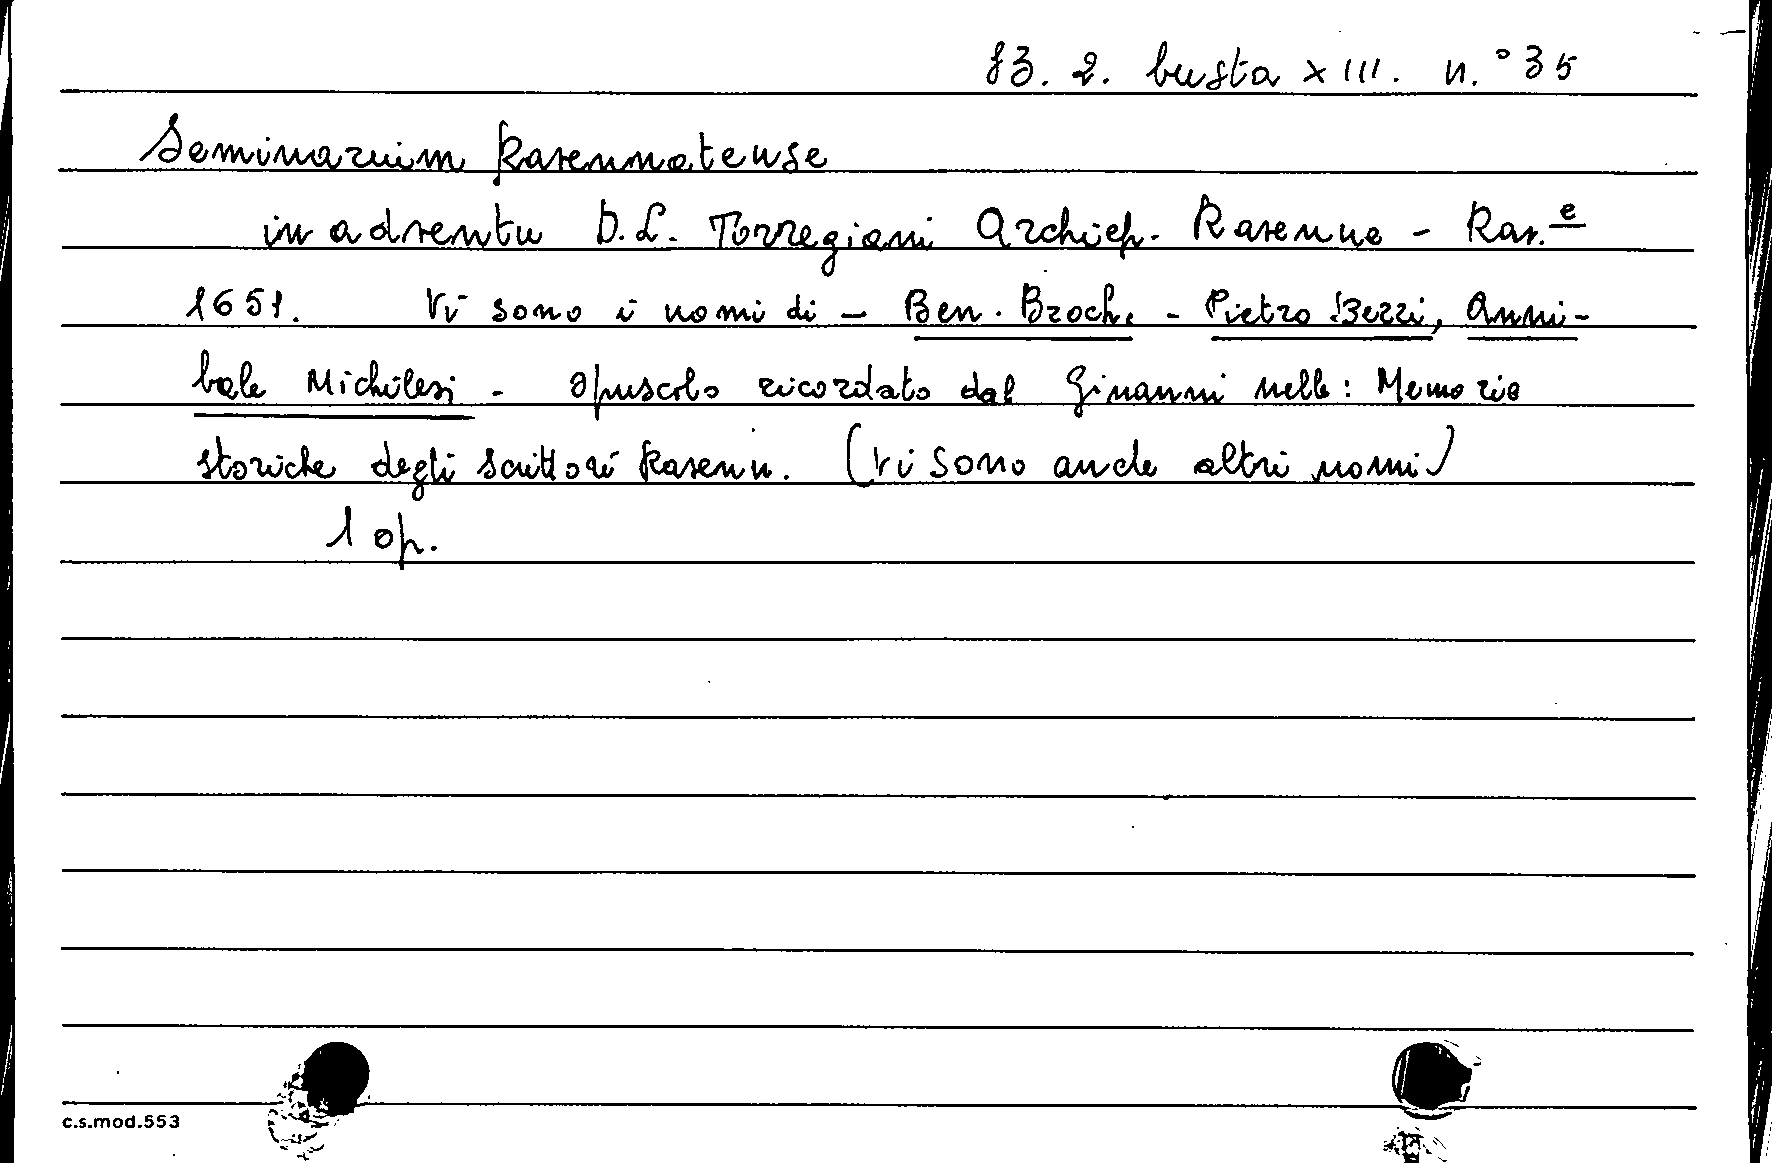 83. 2. busta XIII. n.° 35
Seminarium Ravennatense
in adventu D.L. Torregiani Archiep. Ravennae - Rav.e
1651. Vi sono i nomi di - Ben. Broch. - Pietro Bezzi, Anni-
bale Michilesi - Opuscolo ricordato dal Ginanni nelle: Memorie
storiche degli scrittori Ravenn. (Vi sono anche altri nomi)
1 op.
c.s.mod.553